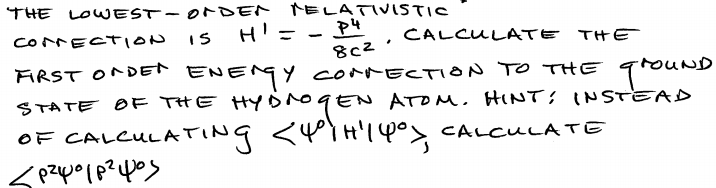 THE LOWEST-ORDER RELATIVISTIC
CORRECTION IS H' = - P⁴/8C². CALCULATE THE
FIRST ORDER ENERGY CORRECTION TO THE GROUND
STATE OF THE HYDROGEN ATOM. HINT: INSTEAD
OF CALCULATING <Ψ⁰|H'|Ψ⁰>, CALCULATE
<P²Ψ⁰|P²Ψ⁰>